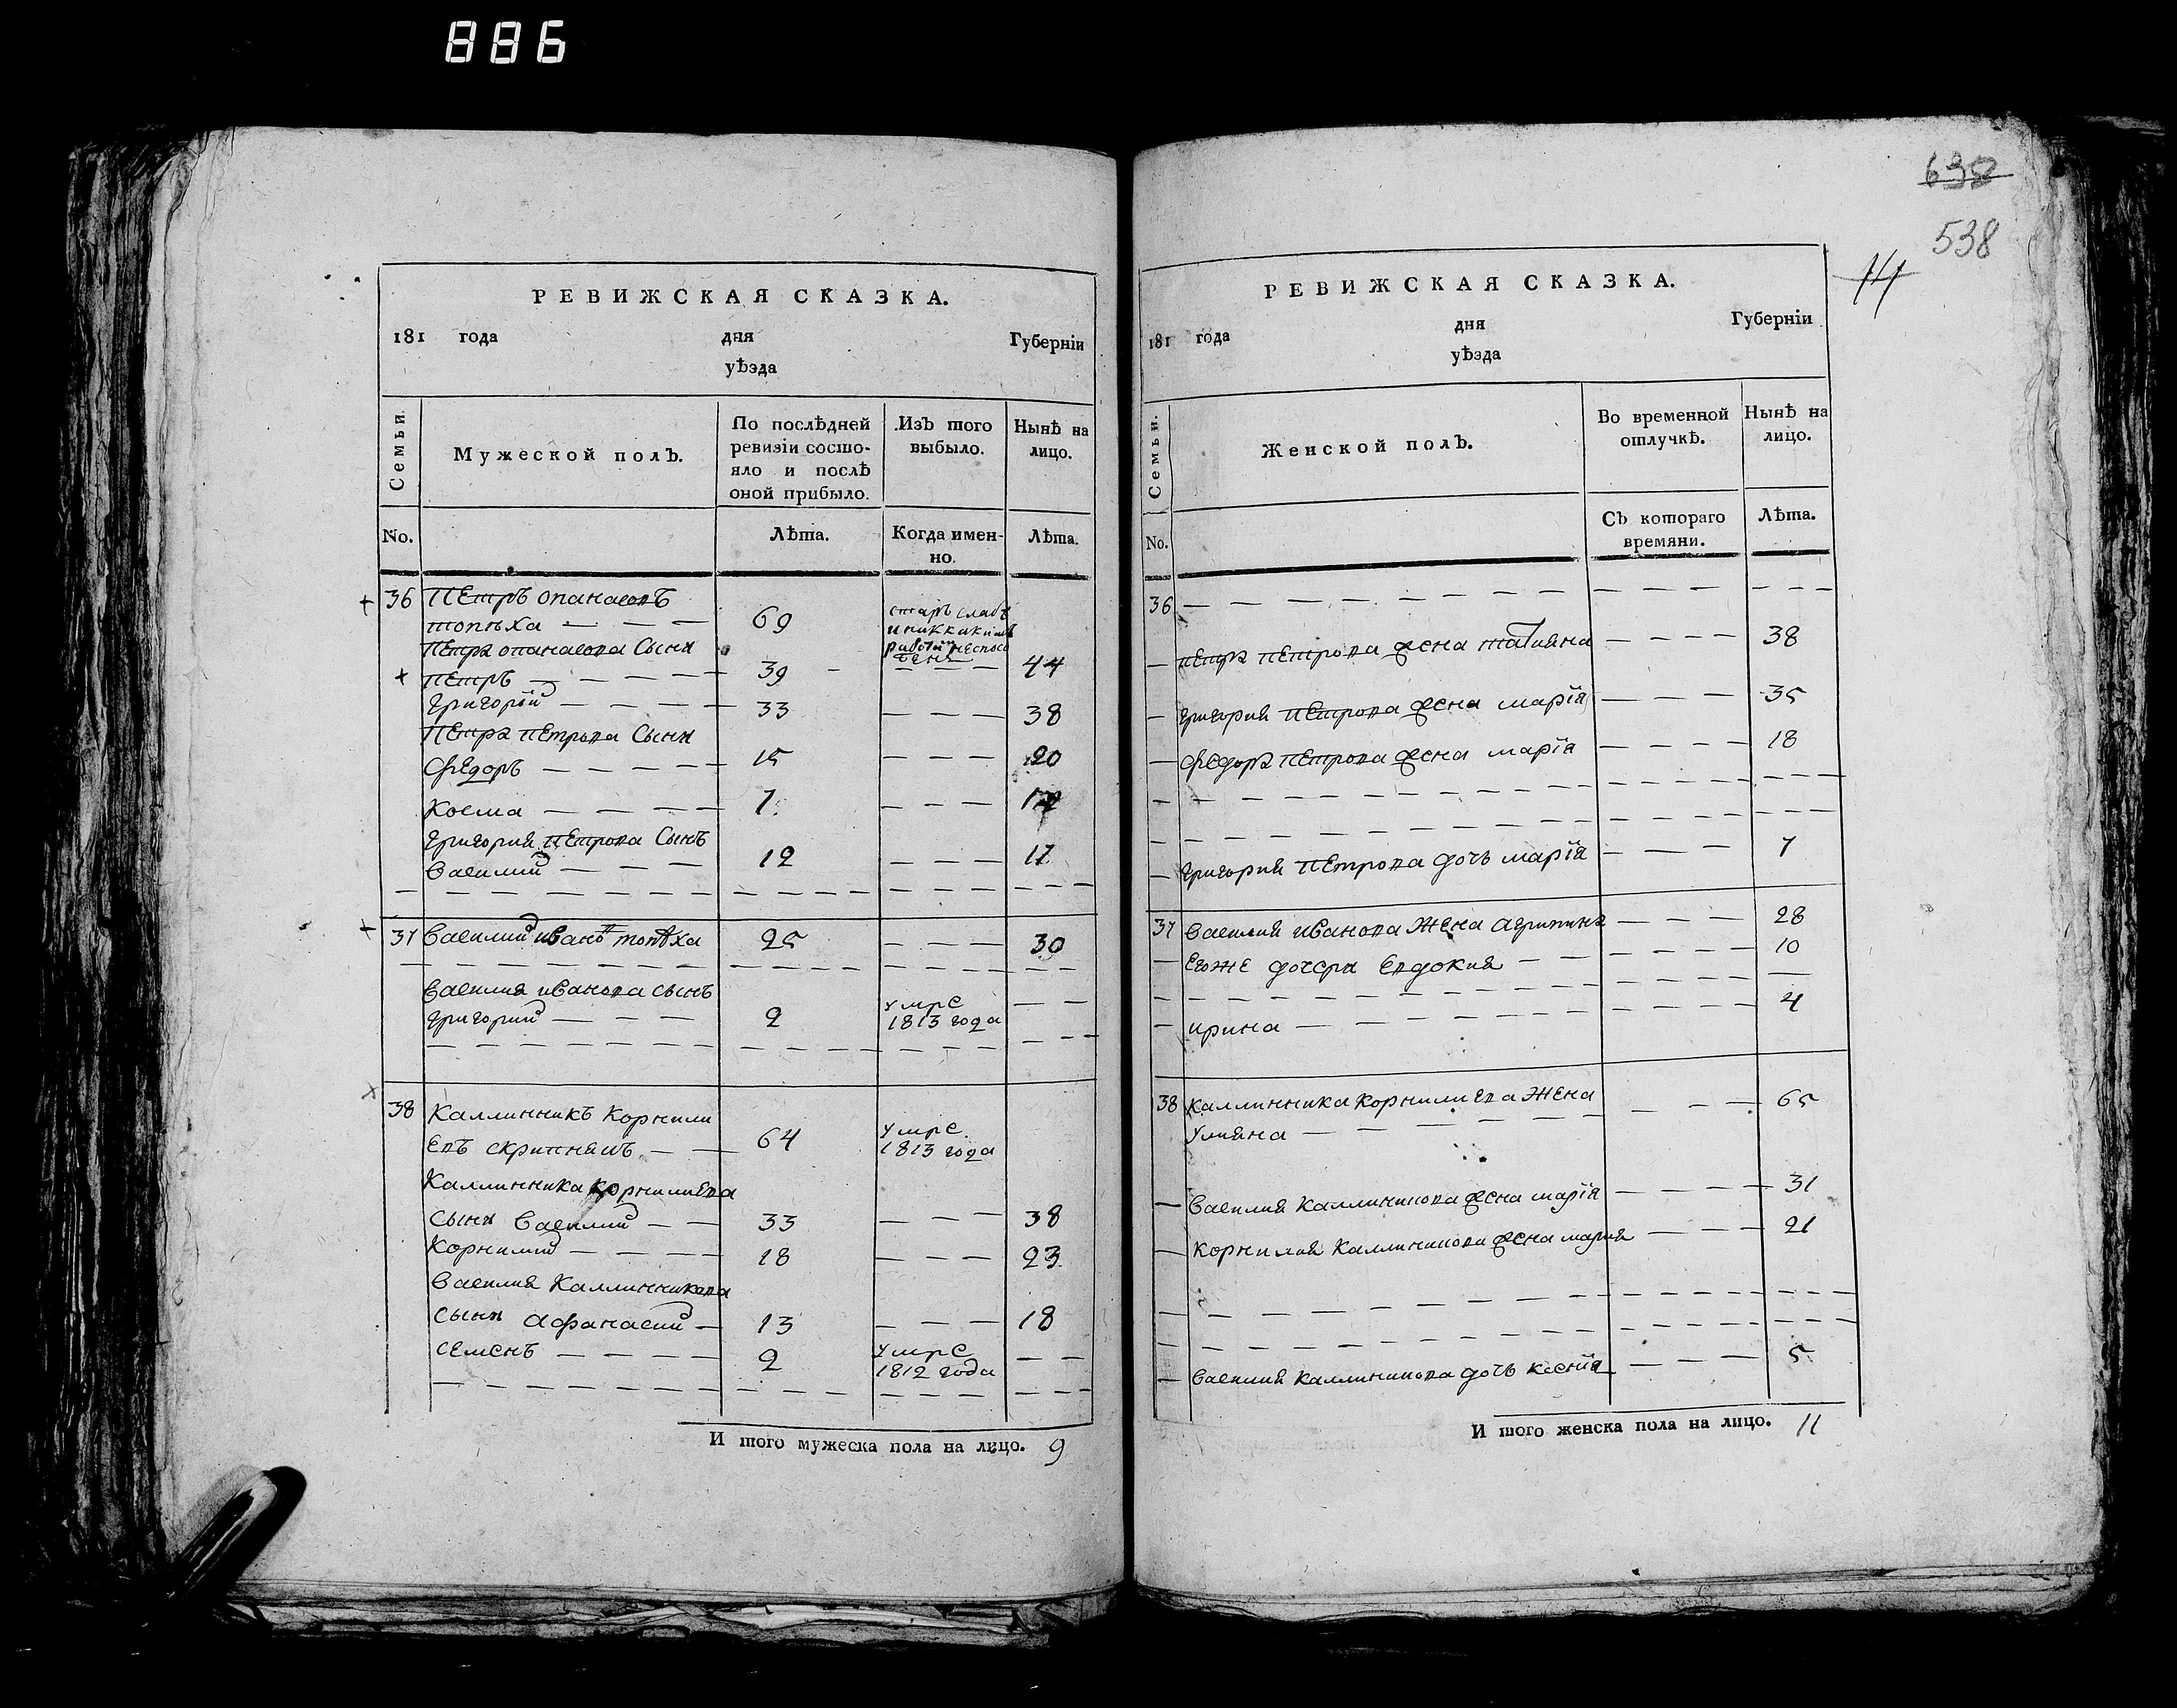 886
РЕВИЖСКАЯ СКАЗКА.
181 года дня Губерніи
уѣзда
Семьи.
Мужеской полъ.
По послѣдней ревизіи состо-
яло и послѣ
оной прибыло.
Изъ того
выбыло.
Нынѣ на
лицо.
No.
Лѣта.
Когда имен-
но.
Лѣта.
36 Петръ опанасовъ
топѣха 69
старъ слабъ
и никкакимъ
работамъ неспосо
бенъ
Петра опанасова сыны
петръ 39 44
григорий 33 38
Петра петрова сыны
Федоръ 15 20
Косма 7 12
григория петрова сынъ
василий 12 17
37 василий иванов топѣха 25 30
василия иванова сынъ
григорий 2 умре
1813 года
38 каллинникъ корнили
евъ скрипняиъ 64 умре
1813 года
каллинника корнилиева
сыны василий 33 38
корнилий 18 23
василия каллинникова
сыны афанасий 13 18
семенъ 2 умре
1812 года
И того мужеска пола на лицо. 9
632
538
14
РЕВИЖСКАЯ СКАЗКА.
181 года дня Губерніи
уѣзда
Семьи.
Женской полъ.
Во временной
отлучкѣ.
Нынѣ на
лицо.
No.
Съ котораго
времяни.
Лѣта.
36
петра петрова жена татияна 38
григория петрова жена марїя 35
федора петрова жена марїя 18
григория петрова дочь марїя 7
37 василия иванова жена агрипина 28
егоже дочери евдокия 10
ирина 4
38 каллинника корнилиева жена 65
улияна
василия каллиникова жена марїя 31
корнилия каллиникова жена мария 21
василия каллиникова дочь ксенїя 5
И того женска пола на лицо. 11